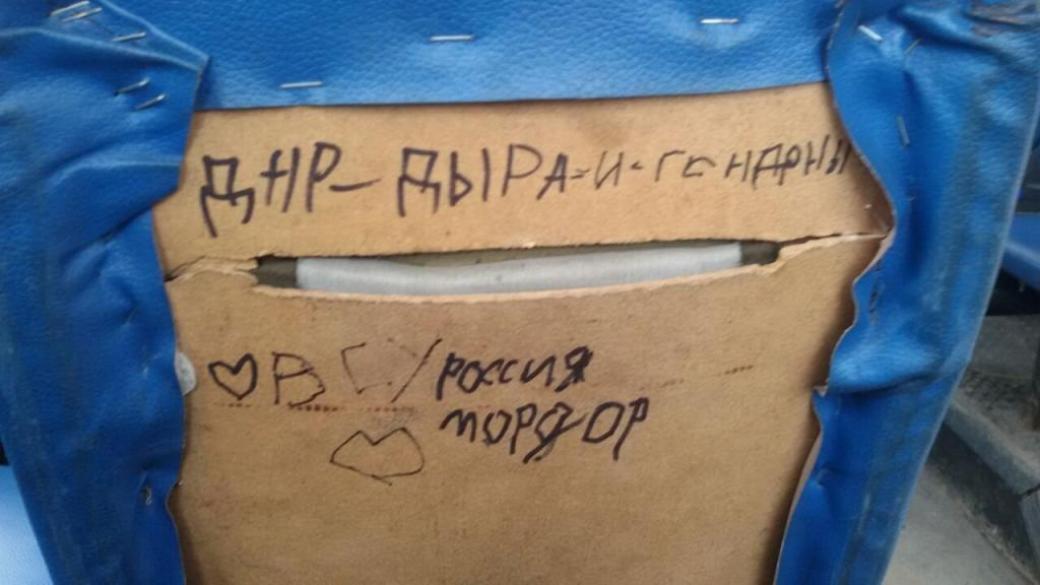 ДНР- ДЫРА-И-ГОНДОНЫ
♡ ВСУ россия
мордор